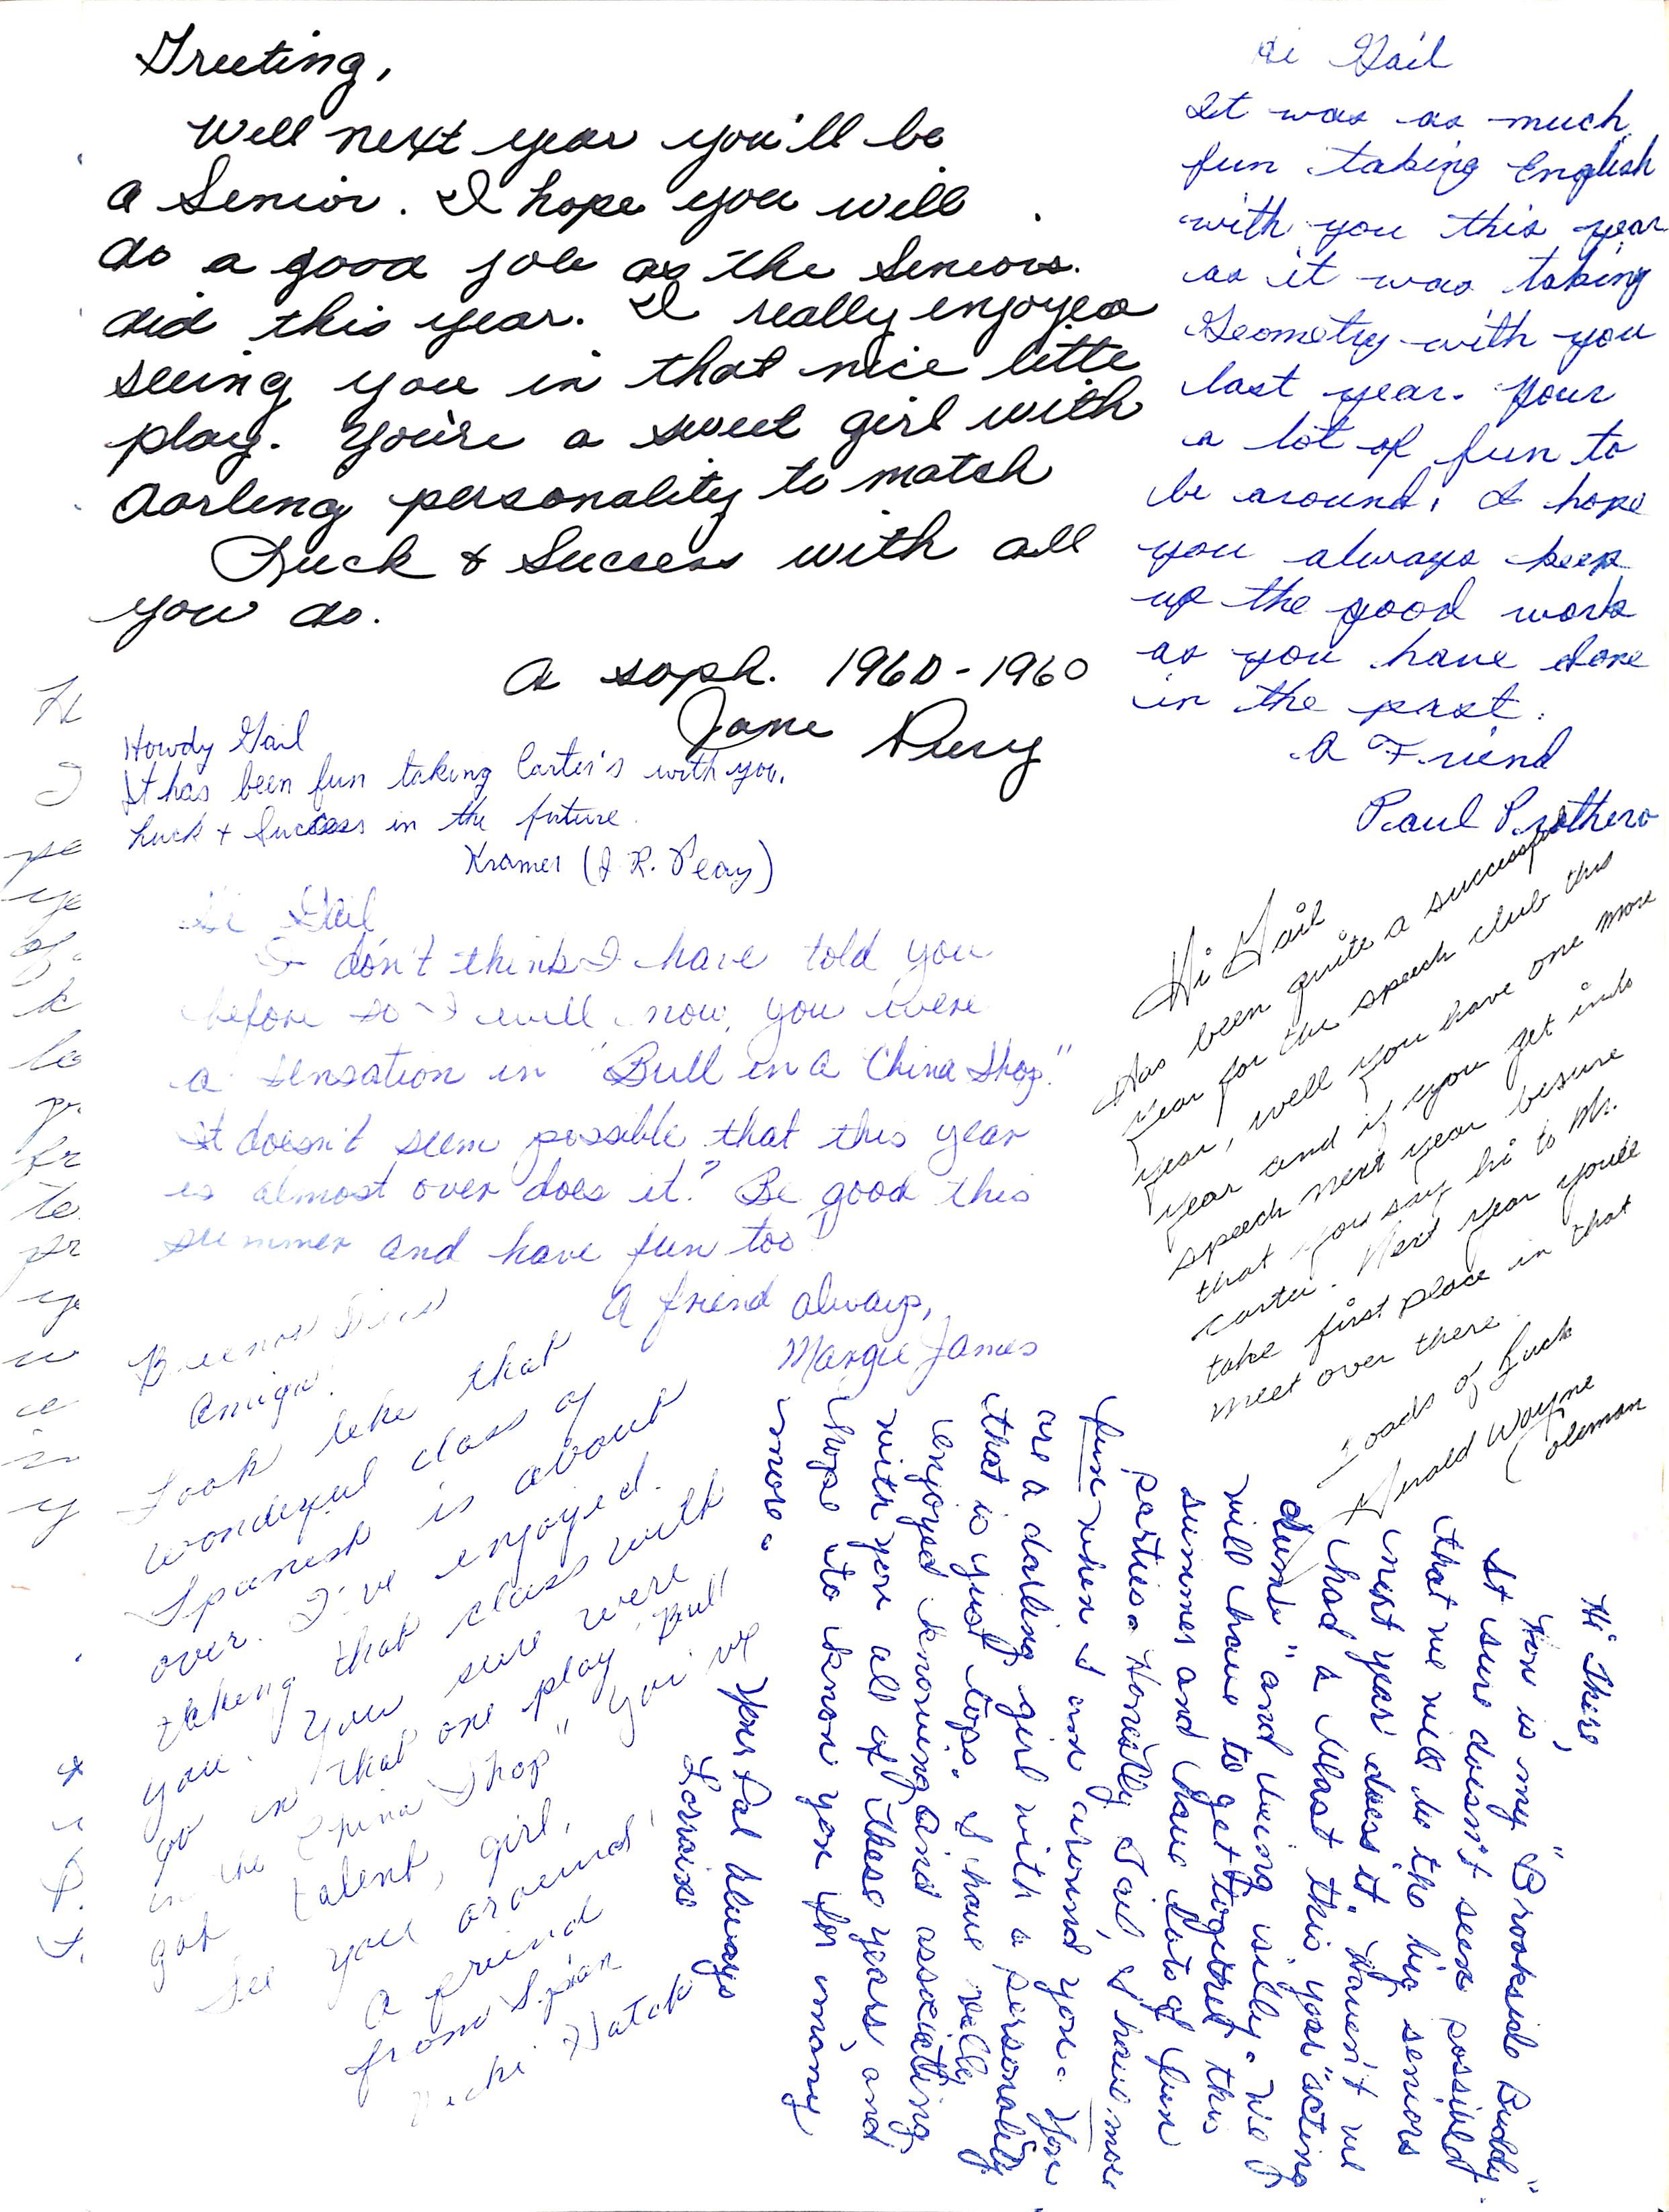 Greeting,
Well next year you'll be
a Senior. I hope you will
do a good job as the Seniors.
did this year. I really enjoyed
seeing you in that nice litte
play. You're a sweet girl with
darling personality to match
Luck & Success with all
you do.
A soph. 1960-1960
Jane
Hi Gail
It was as much
fun taking English
with you this year
as it was taking
Geometry with you
last year. Your
a lot of fun to
be around, I hope
you always keep
up the good work
as you have done
in the past.
A Friend
Paul Prothero
Howdy Gail
It has been fun taking Carter's with you.
Luck & Success in the future.
Kramer (J. R. Peay)
Hi Gail
I don't think I have told you
before so I will now, you were
a sensation in "Bull in a China Shop."
It doesn't seem possible that this year
is almost over does it? Be good this
summer and have fun too
A friend always,
Margie James
Hi Gail
Has been quite a successful
year for the speech club this
year, well you have one more
year and if you get into
speech next year besure
that you say hi to Mr.
Carter. Next year youll
take first place in that
meet over there.
Loads of Luck
Jerald Wayne
Coleman
Buenos Dias
Amiga.
Look like that
wonderful class of
Spanish is about
over. I've enjoyed
taking that class with
you. You sure were
go in that one play "Bull
in the China Shop" You've
got talent, girl,
See you around,
a friend
from Span
Vicki Hatch
Hi There,
How is my "Brookside Buddy"
It sure doesn't seem possible
that we will be the big seniors
next year does it. Haven't we
had a blast this year "acting
dumb" and being silly. We
will have to get together this
summer and have lots of fun
parties. Honestly Gail, I have more
fun when I am around you. You
are a darling girl with a personality
that is just tops. I have really
enjoyed knowing and associating
with you all of these years and
hope to know you for many
more.
Your Pal Always
Lorraine